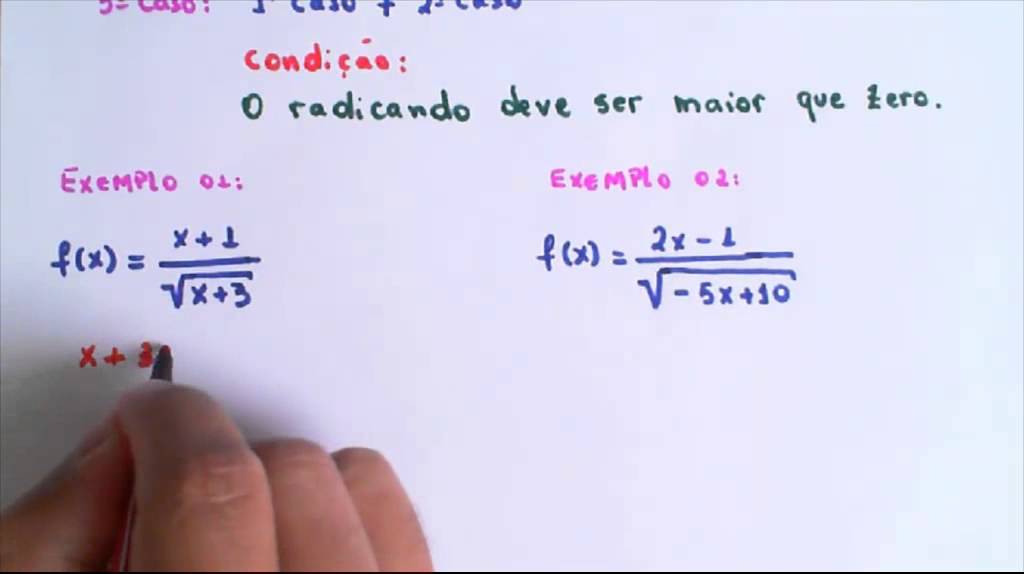 3º Caso: 1º Caso + 2º Caso
Condição:
O radicando deve ser maior que zero.
EXEMPLO 01:
f(x) = x + 1 / √x+3
x + 3
EXEMPLO 02:
f(x) = 2x - 1 / √-5x+10